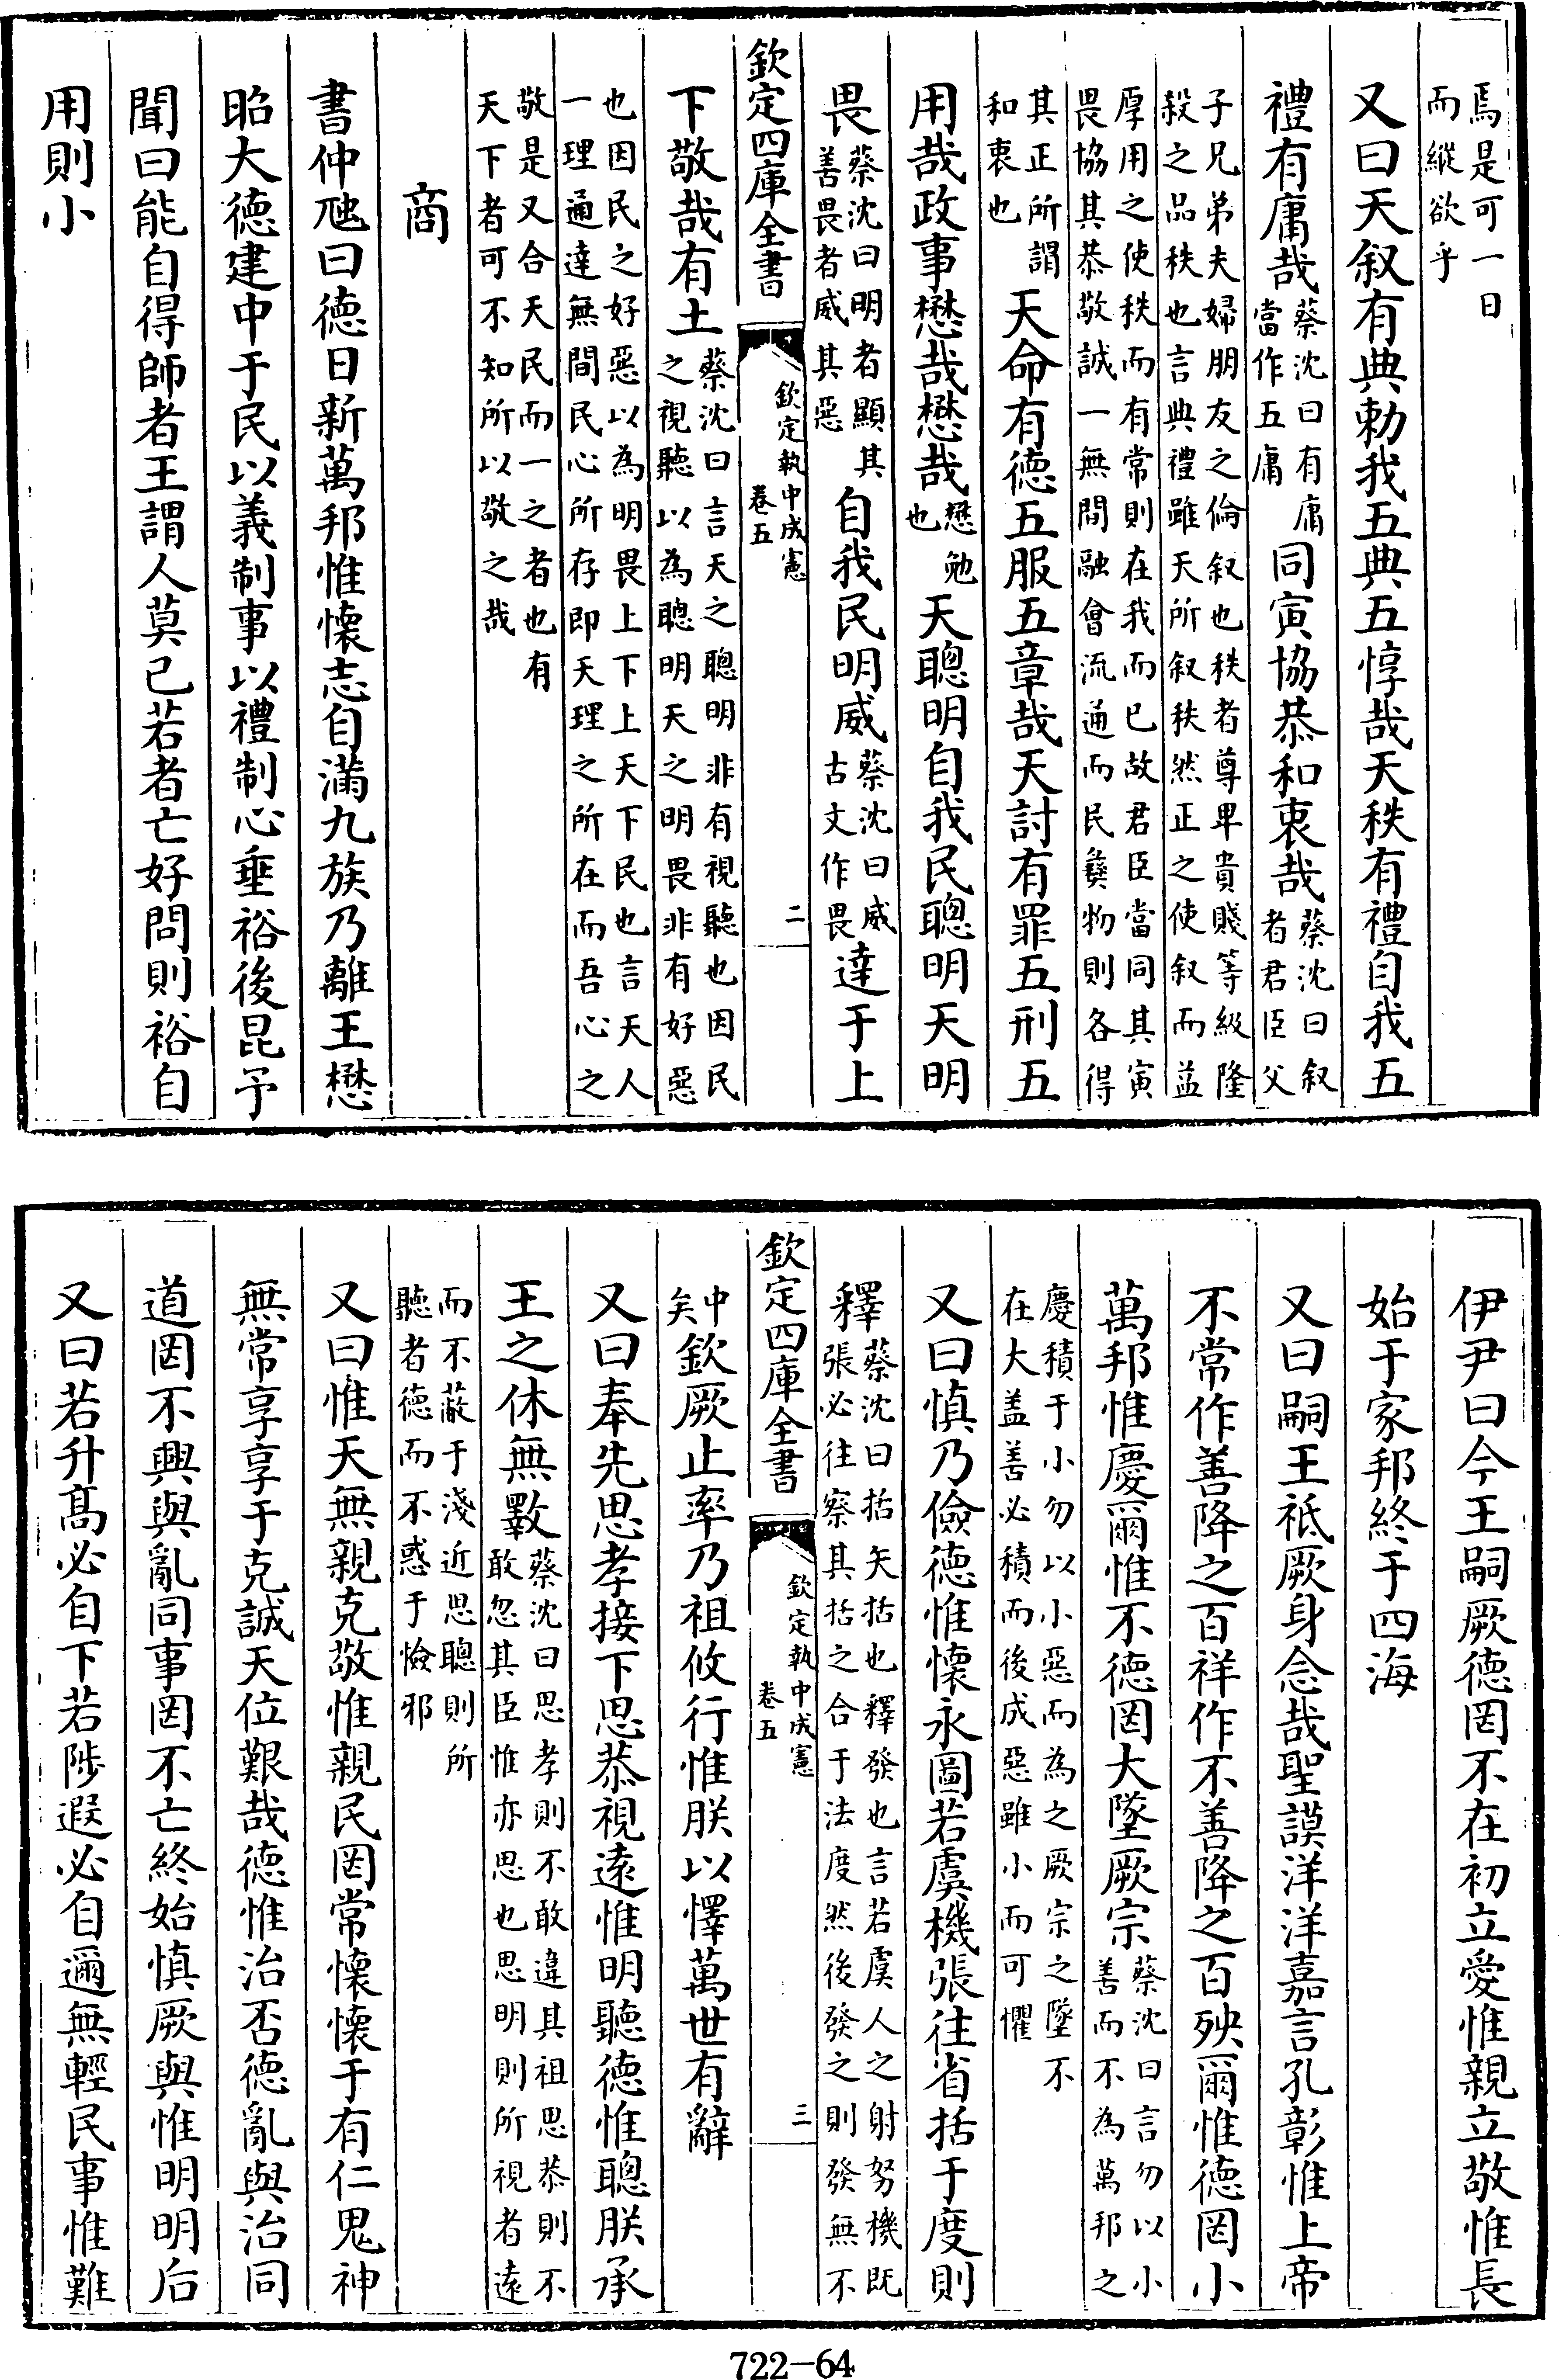 焉是可一日
而縱欲乎
又曰天叙有典勅我五典五惇哉天秩有禮自我五
禮有庸哉蔡沈曰有庸當作五庸同寅協恭和衷哉蔡沈曰叙者君臣父
子兄弟夫婦朋友之倫叙也秩者尊卑貴賤等級隆
殺之品秩也言典禮雖天所叙秩然正之使叙而益
厚用之使秩而有常則在我而已故君臣當同其寅
畏協其恭敬誠一無間融會流通而民彝物則各得
其正所謂
和衷也
天命有德五服五章哉天討有罪五刑五
用哉政事懋哉懋哉懋勉也天聰明自我民聰明天明
畏蔡沈曰明者顯其善畏者威其惡自我民明威蔡沈曰威古文作畏達于上
欽定四庫全書
欽定執中成憲
卷五
二
下敬哉有土蔡沈曰言天之聰明非有視聽也因民之視聽以為聰明天之明畏非有好惡
也因民之好惡以為明畏上下上天下民也言天人
一理通達無間民心所存即天理之所在而吾心之
敬是又合天民而一之者也有
天下者可不知所以敬之哉
商
書仲虺曰德日新萬邦惟懷志自滿九族乃離王懋
昭大德建中于民以義制事以禮制心垂裕後昆予
聞曰能自得師者王謂人莫己若者亡好問則裕自
用則小
伊尹曰今王嗣厥德罔不在初立愛惟親立敬惟長
始于家邦終于四海
又曰嗣王祗厥身念哉聖謨洋洋嘉言孔彰惟上帝
不常作善降之百祥作不善降之百殃爾惟德罔小
萬邦惟慶爾惟不德罔大墜厥宗蔡沈曰言勿以小善而不為萬邦之
慶積于小勿以小惡而為之厥宗之墜不
在大盖善必積而後成惡雖小而可懼
又曰慎乃儉德惟懷永圖若虞機張往省括于度則
釋蔡沈曰括矢括也釋發也言若虞人之射弩機既張必往察其括之合于法度然後發之則發無不
欽定四庫全書
欽定執中成憲
卷五
三
中矣欽厥止率乃祖攸行惟朕以懌萬世有辭
又曰奉先思孝接下思恭視遠惟明聽德惟聰朕承
王之休無斁蔡沈曰思孝則不敢違其祖思恭則不敢忽其臣惟亦思也思明則所視者遠
而不蔽于淺近思聰則所
聽者德而不惑于憸邪
又曰惟天無親克敬惟親民罔常懷懷于有仁鬼神
無常享享于克誠天位艱哉德惟治否德亂與治同
道罔不興與亂同事罔不亡終始慎厥與惟明明后
又曰若升高必自下若陟遐必自邇無輕民事惟難
722-64